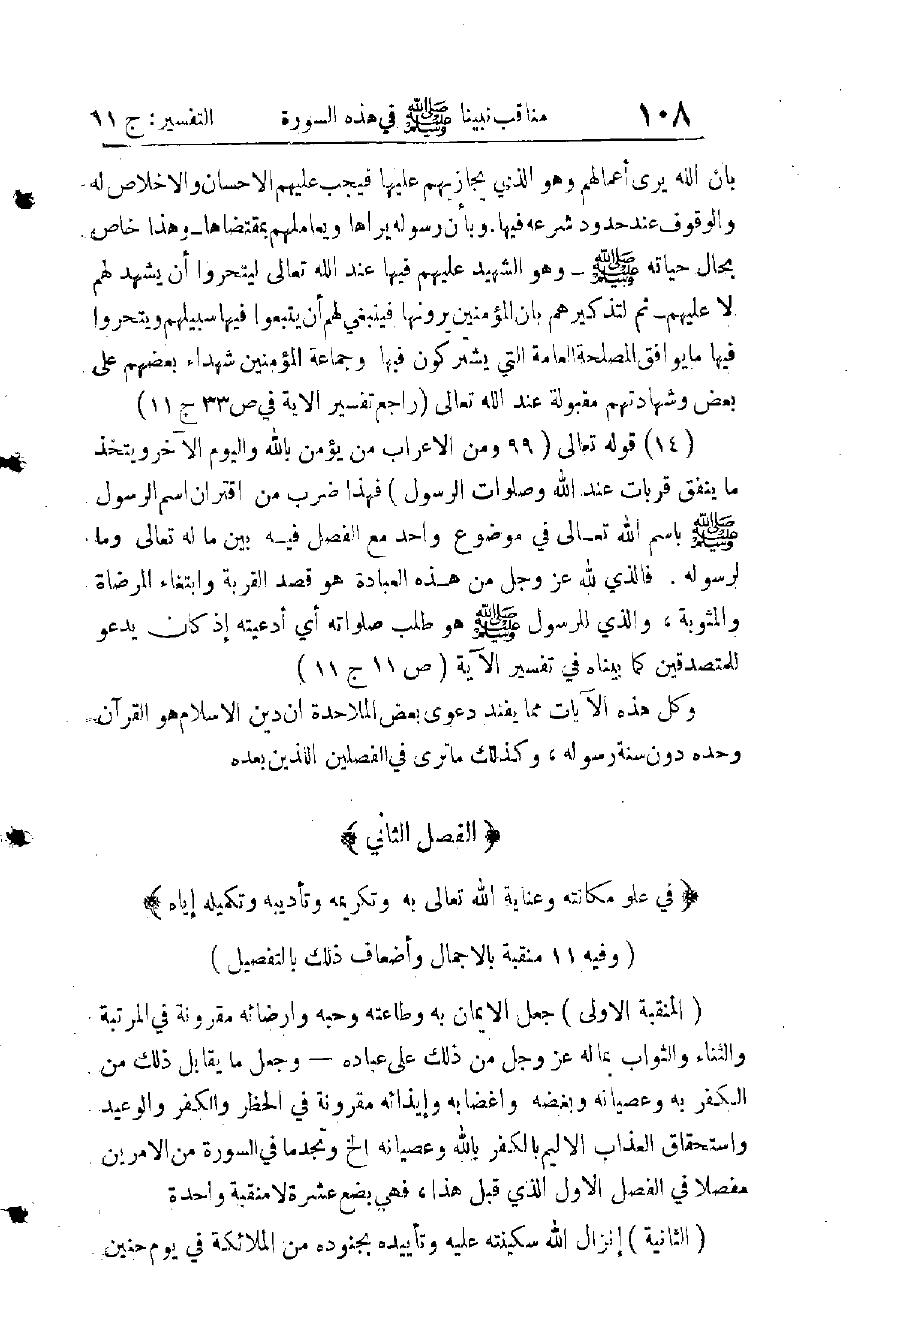 ١٠٨ مناقب نبينا ﷺ في هذه السورة التفسير: ج ١١
بأن الله يرى أعمالهم وهو الذي يجازيهم عليها فيجب عليهم الاحسان والاخلاص له
والوقوف عند حدود شرعه فيها. وبأن رسوله يراها ويعاملهم بمقتضاها ــ وهذا خاص
بحال حياته ﷺ ــ وهو الشهيد عليهم فيها عند الله تعالى ليتحروا أن يشهد لهم
لا عليهم ــ ثم لتذكيرهم بان المؤمنين يرونها فينبغي لهم أن يتبعوا فيها سبيلهم ويتحروا
فيها ما يوافق المصلحة العامة التي يشتركون فيها وجماعة المؤمنين شهداء بعضهم على
بعض وشهادتهم مقبولة عند الله تعالى (راجع تفسير الاية في ص ٣٣ ج ١١)
(١٤) قوله تعالى ( ٩٩ ومن الاعراب من يؤمن بالله واليوم الآخر ويتخذ
ما ينفق قربات عند الله وصلوات الرسول ) فهذا ضرب من اقتران اسم الرسول
ﷺ باسم الله تعـالى في موضوع واحد مع الفصل فيـه بين ما له تعالى وما
لرسوله . فالذي لله عز وجل من هـذه العبادة هو قصد القربة وابتغاء المرضاة
والمثوبة ، والذي للرسول ﷺ هو طلب صلواته أي أدعيته إذ كان يدعو
للمتصدقين كما بيناه في تفسير الآية ( ص ١١ ج ١١ )
وكل هذه الآيات مما يفند دعوى بعض الملاحدة ان دين الاسلام هو القرآن
وحده دون سنة رسوله ، وكذلك ما ترى في الفصلين اللذين بعده
﴿ الفصل الثاني ﴾
﴿ في علو مكانته وعناية الله تعالى به وتكريمه وتأديبه وتكميله إياه ﴾
( وفيه ١١ منقبة بالاجمال وأضعاف ذلك بالتفصيل )
( المنقبة الاولى ) جعل الايمان به وطاعته وحبه وارضائه مقرونة في المرتبة
والثناء والثواب بما له عز وجل من ذلك على عباده — وجعل ما يقابل ذلك من
الكفر به وعصيانه وبغضه واغضابه وإيذائه مقرونة في الحظر والكفر والوعيد
واستحقاق العذاب الاليم بالكفر بالله وعصيانه الخ وتجدما في السورة من الامرين
مفصلا في الفصل الاول الذي قبل هذا ، فهي بضع عشرة لا منقبة واحدة
( الثانية ) إنزال الله سكينته عليه وتأييده بجنوده من الملائكة في يوم حنين